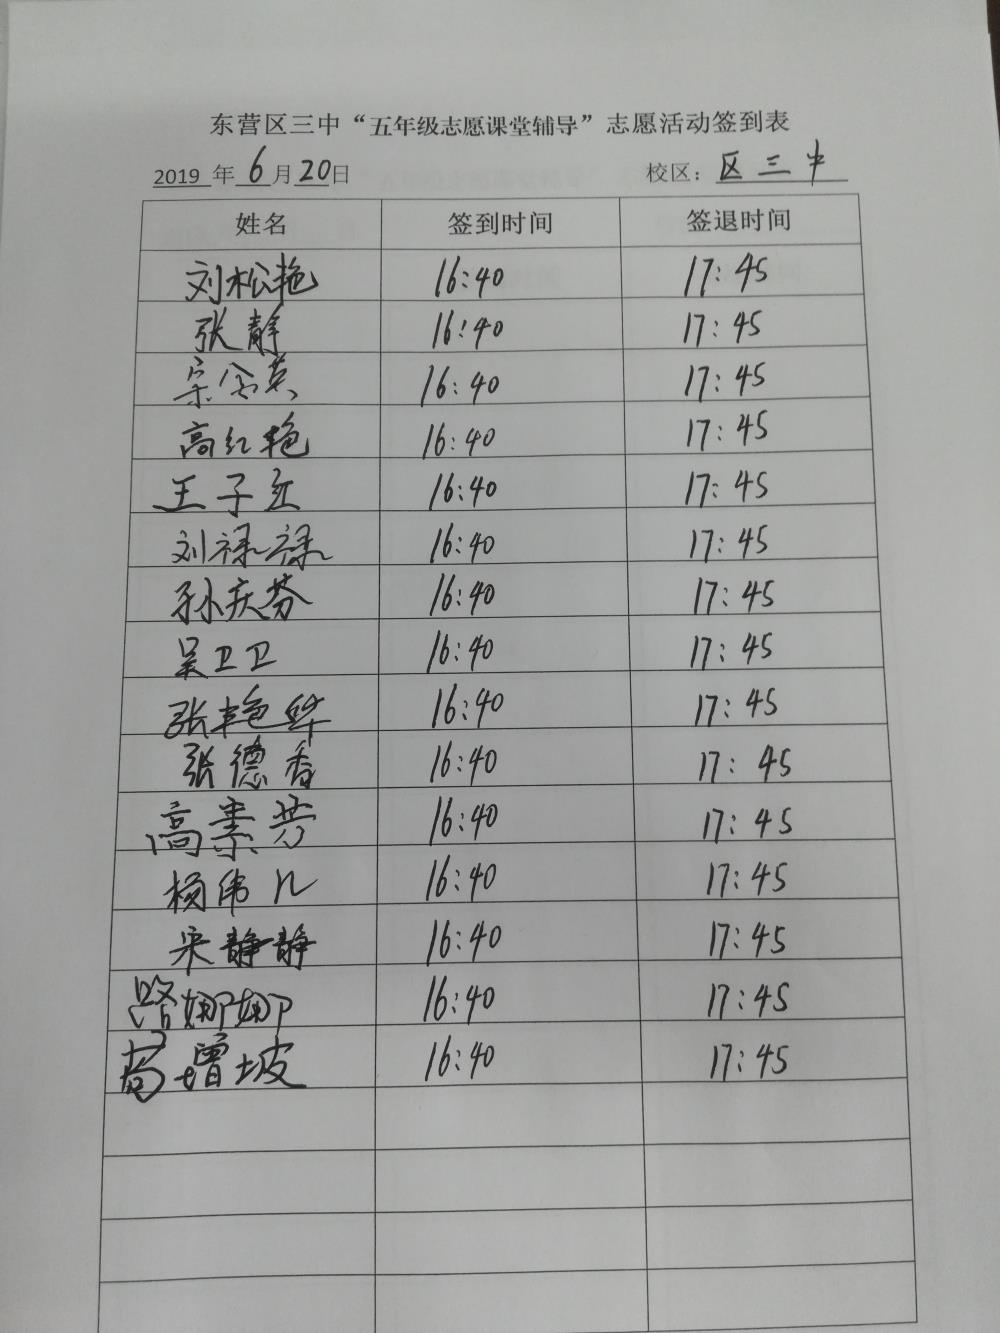 东营区三中“五年级志愿课堂辅导”志愿活动签到表
2019 年 6 月 20 日 校区：区三中
姓名 签到时间 签退时间
刘松艳 16:40 17:45
张静 16:40 17:45
宋金英 16:40 17:45
高红艳 16:40 17:45
王子红 16:40 17:45
刘禄禄 16:40 17:45
孙庆芬 16:40 17:45
吴卫卫 16:40 17:45
张艳华 16:40 17:45
张德香 16:40 17:45
高素芳 16:40 17:45
杨伟儿 16:40 17:45
宋静静 16:40 17:45
路娜娜 16:40 17:45
增坡 16:40 17:45